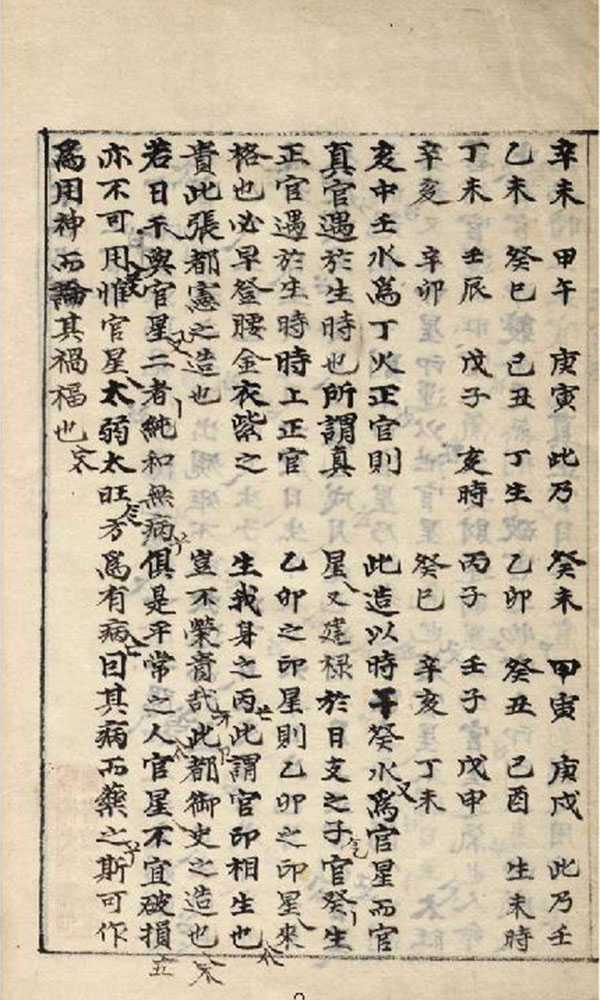 辛未 甲午 庚寅 此乃
乙未 癸巳 己丑 丁生
丁未 壬辰 戊子 亥時
辛亥 辛卯
亥中壬水爲丁火正官則
真官遇於生時也所謂真
正官遇於生時時上正官
格也必早登腰金衣紫之
貴此張都憲之造也
癸未 甲寅 庚戌 此乃壬
乙卯 癸丑 己酉 生未時
丙子 壬子 戊申
癸巳 辛亥 丁未
此造以時干癸水爲官星而官
星又建祿於日支之子官癸生
乙卯之印星則乙卯之印星來
生我身之丙此謂官印相生也
豈不榮貴哉此都御史之造也
若日干與官星二者純和無病俱是平常之人官星不宜破損
亦不可用惟官星太弱太旺方爲有病囙其病而藥之斯可作
爲用神而論其禍福也